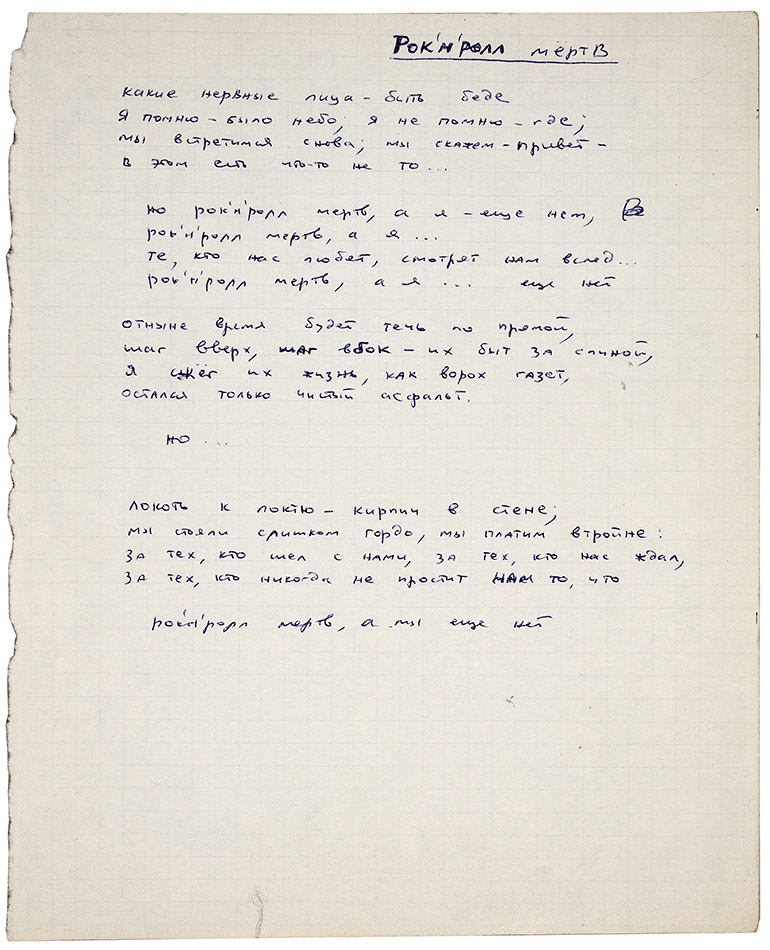 Рок'н'ролл мёртв
какие нервные лица – быть беде
Я помню – было небо; я не помню – где;
мы встретимся снова; мы скажем – привет –
в этом есть что-то не то...
но рок'н'ролл мертв, а я – еще нет,
рок'н'ролл мертв, а я...
те, кто нас любят, смотрят нам вслед...
рок'н'ролл мертв, а я... еще нет
отныне время будет течь по прямой,
шаг вверх, шаг вбок – их быт за спиной,
я сжёг их жизнь, как ворох газет,
остался только чистый асфальт.
но ...
локоть к локтю – кирпич в стене;
мы стояли слишком гордо, мы платим втройне:
за тех, кто шел с нами, за тех, кто нас ждал,
за тех, кто никогда не простит нам то, что
рок'н'ролл мертв, а мы еще нет